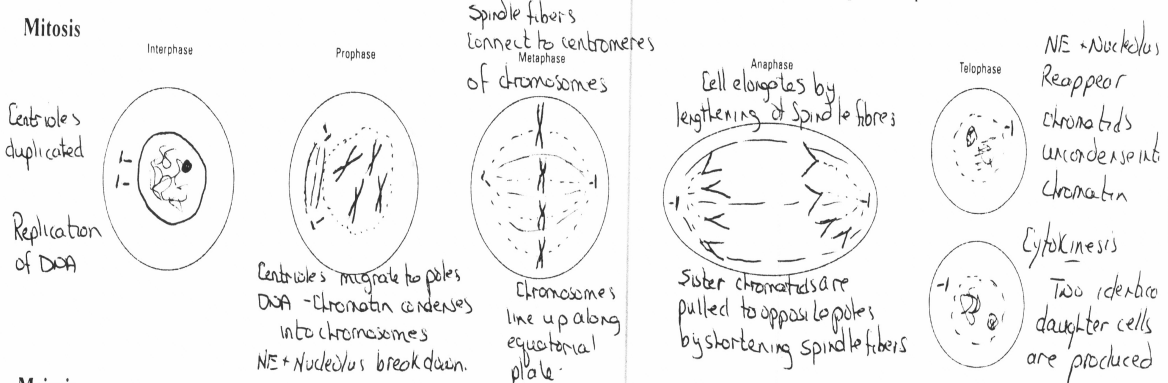 Mitosis
Interphase
Centrioles
duplicated
Replication
of DNA
Prophase
Centrioles migrate to poles
DNA - Chromatin condenses
into chromosomes
NE + Nucleolus breakdown.
Spindle fibers
Connect to centromeres
Metaphase
of chromosomes
Chromosomes
line up along
equatorial
plate.
Anaphase
Cell elongates by
lengthening of spindle fibres
Sister chromatids are
pulled to opposite poles
by shortening spindle fibers
Telophase
NE + Nucleolus
Reappear
Chromatids
uncondense int
Chromatin
Cytokinesis
Two identica
daughter cells
are produced